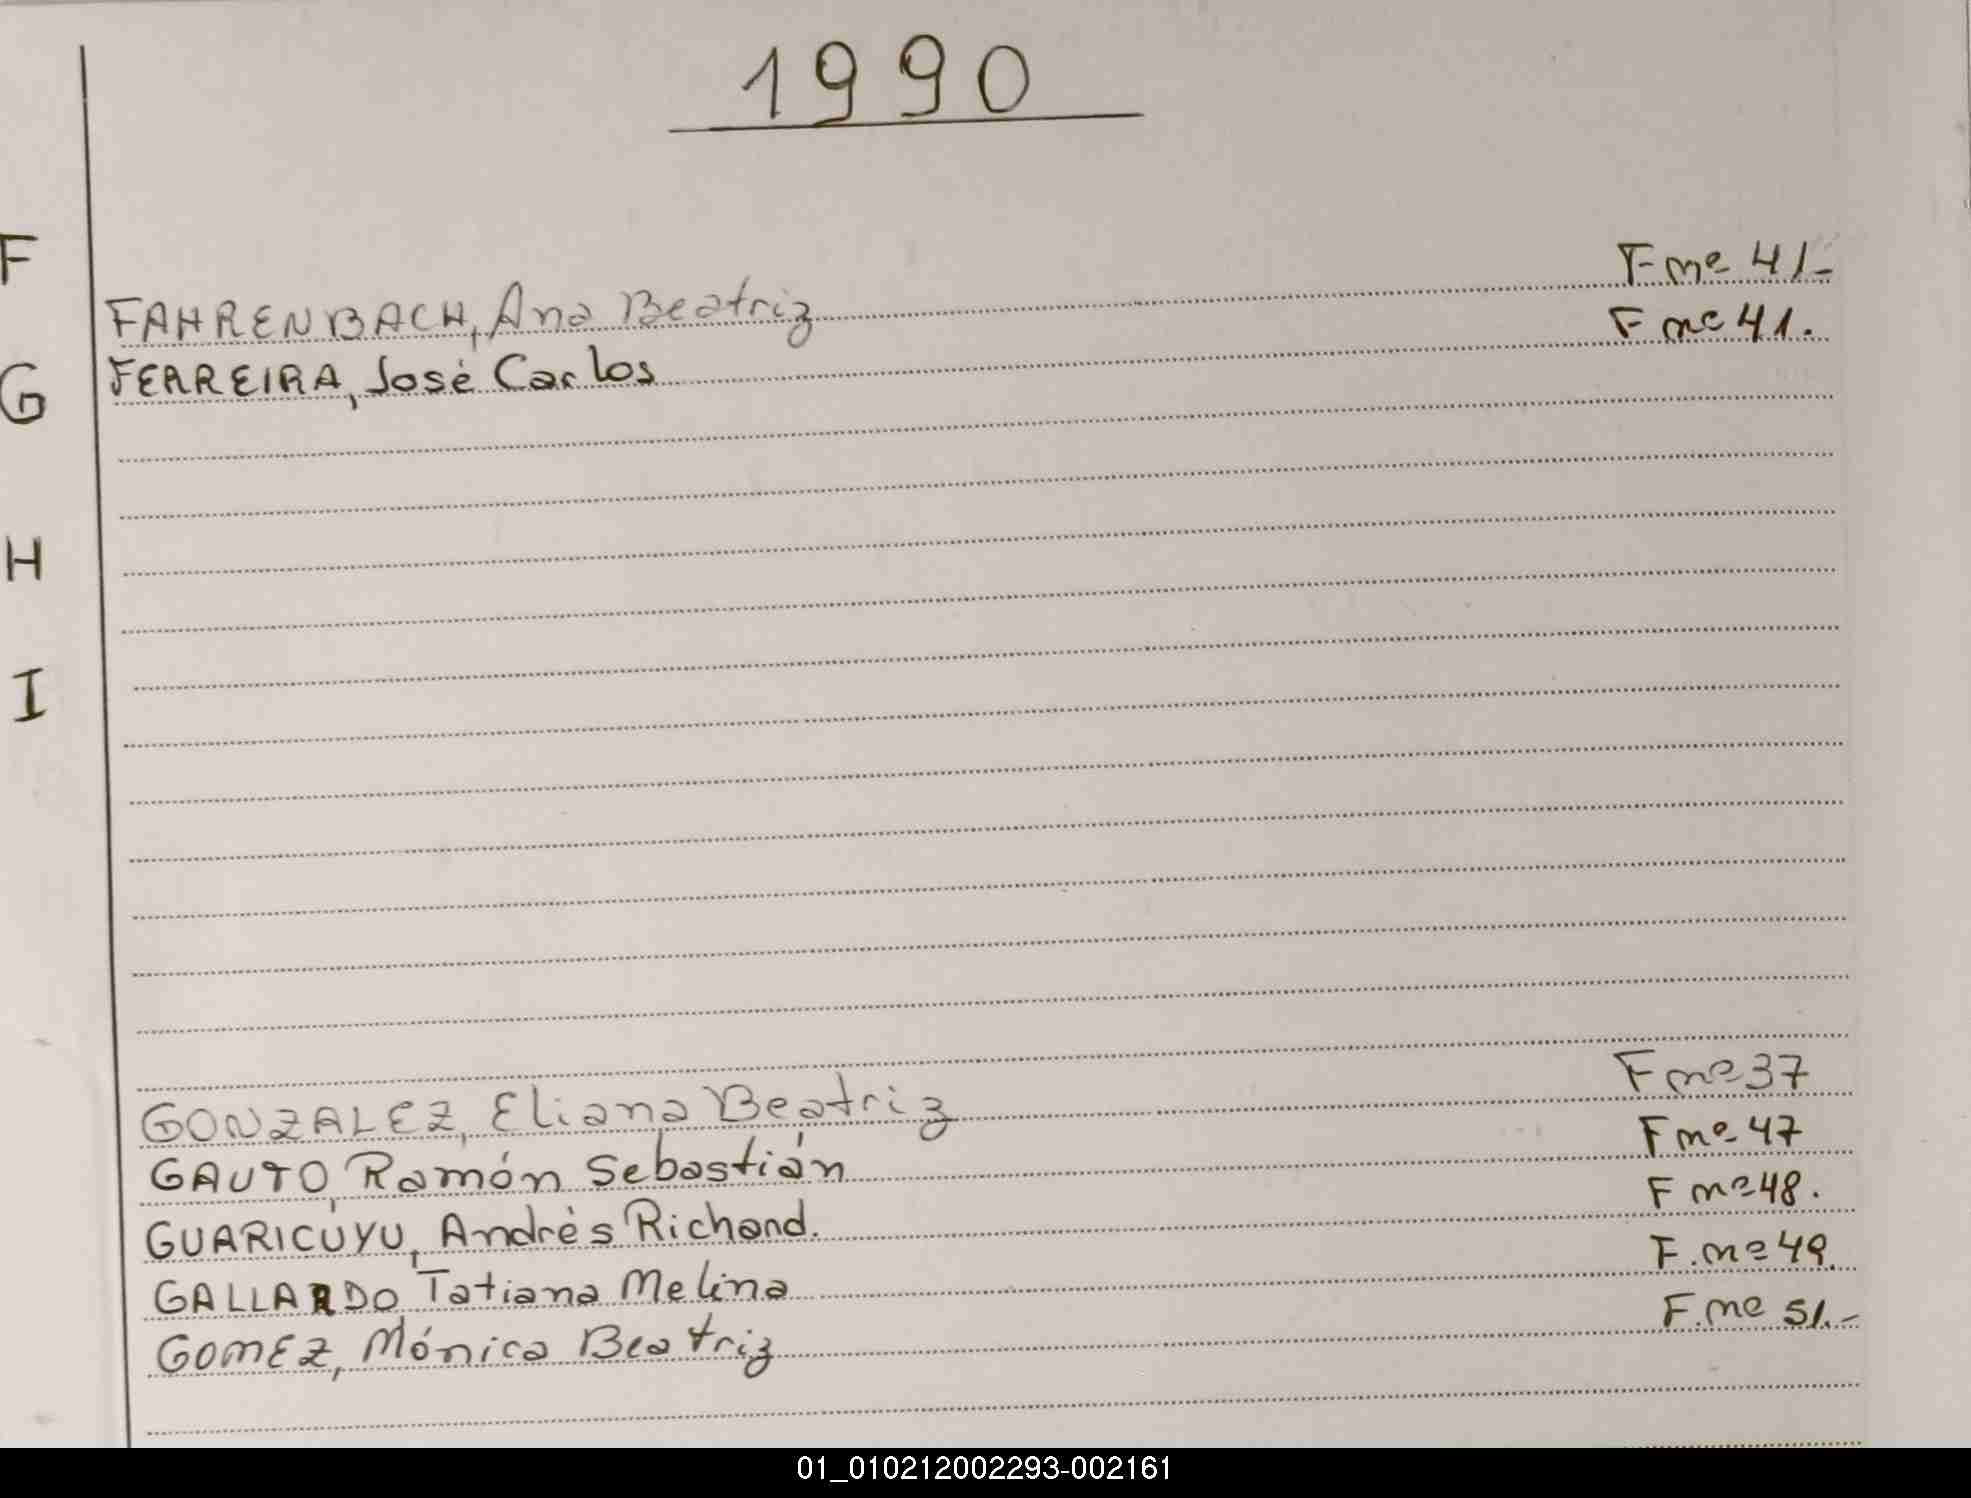 1990
F
FAHRENBACH, Ana Beatriz F nº 41.-
G
FERREIRA, José Carlos F nº 41.
H
I
GONZALEZ, Eliana Beatriz F nº 37
GAUTO, Ramón Sebastián F nº 47
GUARICUYU, Andrés Richard. F nº 48.
GALLARDO, Tatiana Melina F. nº 49.
GOMEZ, Mónica Beatriz F. nº 51.-
01_010212002293-002161